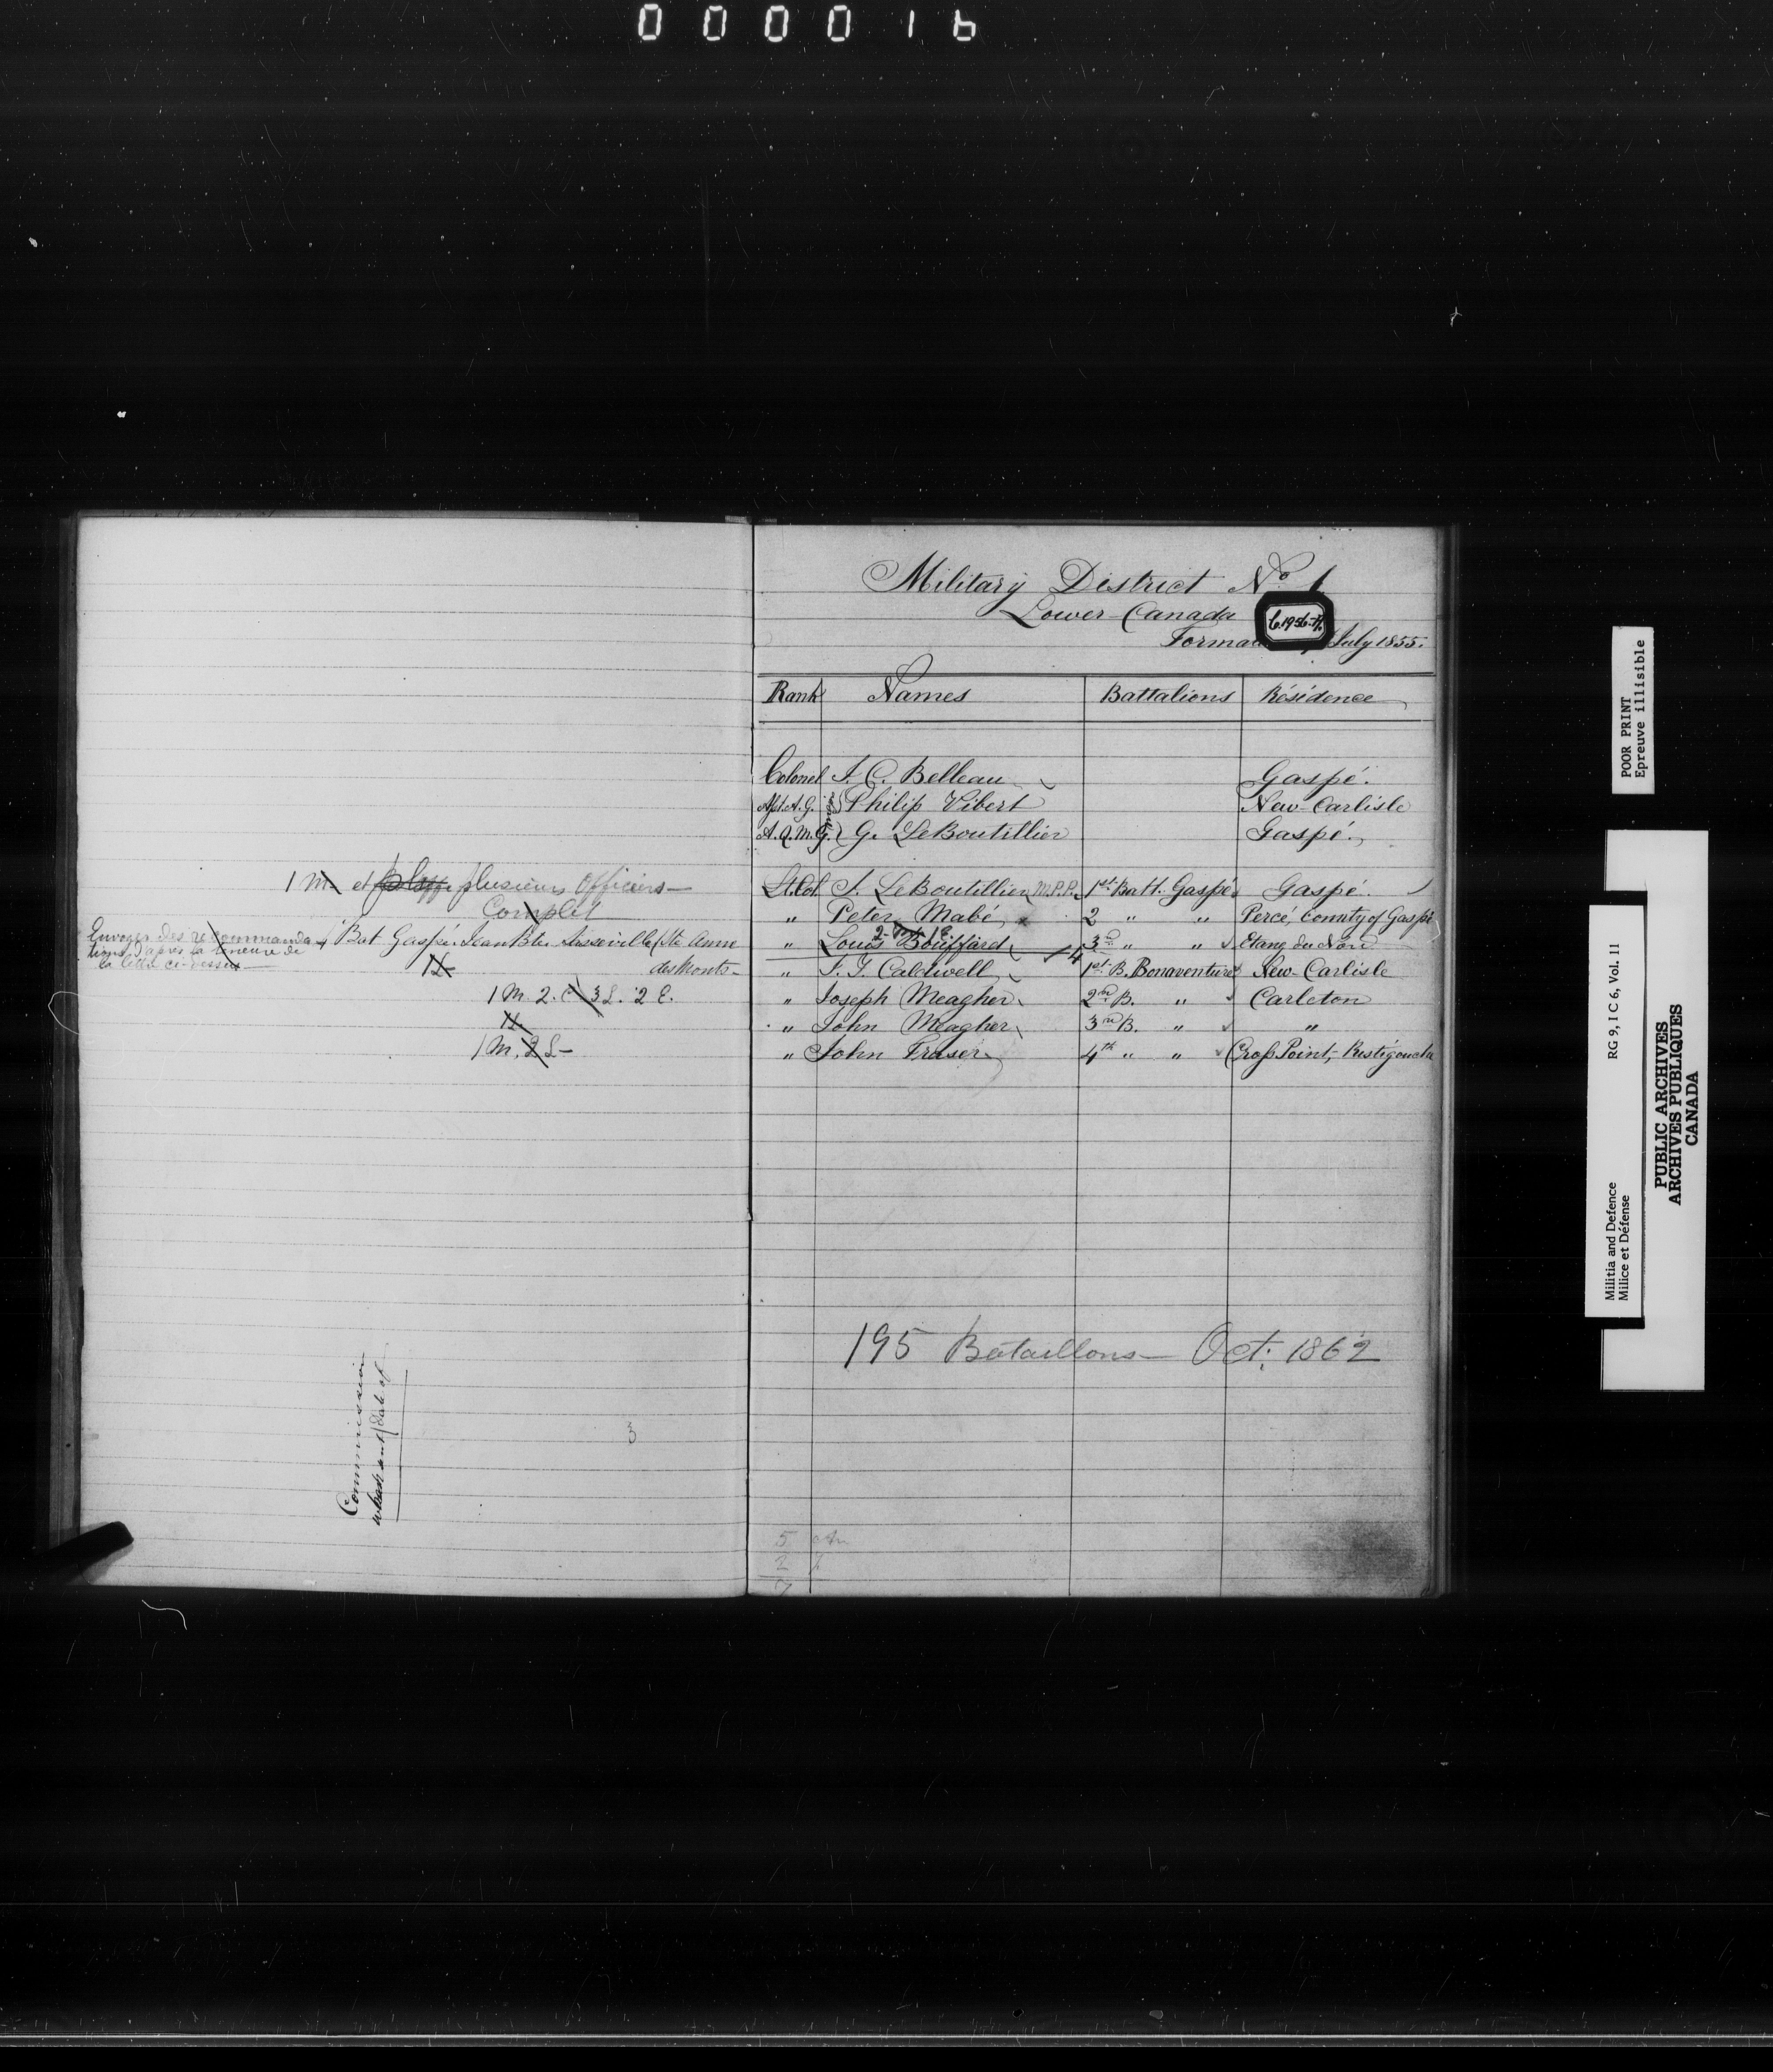 000016
1 M et plusieurs Officiers —
Complet
Envoyer des recommanda-
tions d'après la teneure de
la lettre ci-dessus
4 Bat. Gaspé. Jean Bte Ste Anne
des Monts —
1 L
1 M. 2. C 3 L. 2 E.
1 L.
1 M. 2 L —
Commission
when sent / date of
3
Military District No. 1
Lower-Canada
July 1855.
Rank Names Battalions Résidence
Colonel J. C. Belleau Gaspé.
Asst. A. G. Philip Vibert New-Carlisle
A. Q. M. G. G. LeBoutillier Gaspé.
Lt. Col. J. LeBoutillier, M.P.P. 1st Batt. Gaspé Gaspé.
" Peter Mabé, 2 " " Percé, County of Gaspé
" Louis Bouffard 3d " " Etang du Nord
4
" J. G. Caldwell 1st B. Bonaventure New-Carlisle
" Joseph Meagher 2nd B. " Carleton
" John Meagher 3rd B. " "
" John Fraser 4th " " Cross Point, Restigouche
195 Bataillons — Oct. 1862
5
2
7
POOR PRINT
Epreuve illisible
RG 9, I C 6, Vol. 11
Militia and Defence
Milice et Défense
PUBLIC ARCHIVES
ARCHIVES PUBLIQUES
CANADA